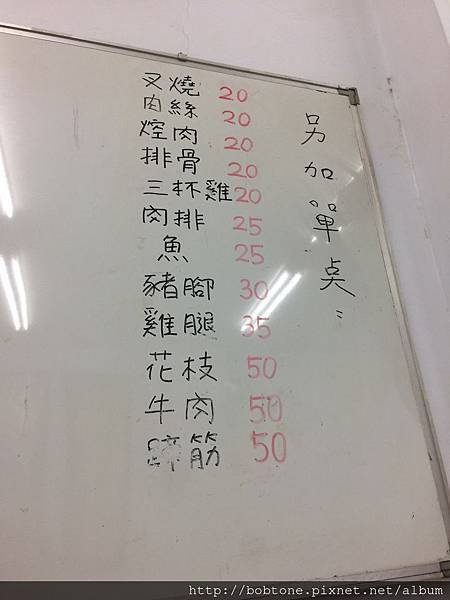 另加單點:
叉燒 20
肉絲 20
焢肉 20
排骨 20
三杯雞 20
肉排 25
魚 25
豬腳 30
雞腿 35
花枝 50
牛肉 50
蹄筋 50
http://bobtone.pixnet.net/album